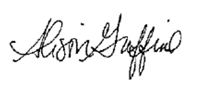 Alison Griffin